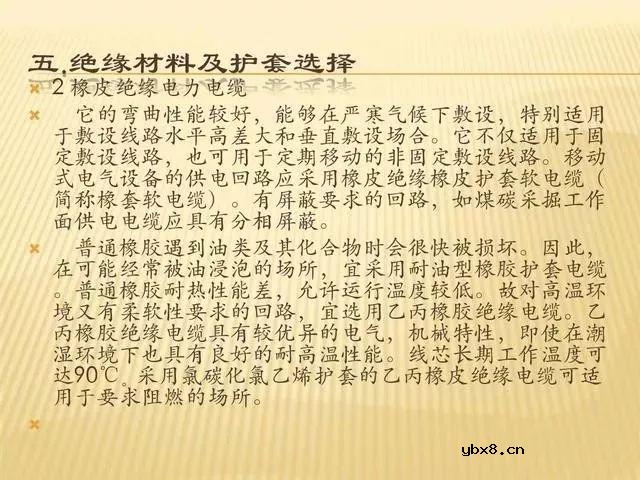 五.绝缘材料及护套选择
2 橡皮绝缘电力电缆
它的弯曲性能较好，能够在严寒气候下敷设，特别适用
于敷设线路水平高差大和垂直敷设场合。它不仅适用于固
定敷设线路，也可用于定期移动的非固定敷设线路。移动
式电气设备的供电回路应采用橡皮绝缘橡皮护套软电缆（
简称橡套软电缆）。有屏蔽要求的回路，如煤碳采掘工作
面供电电缆应具有分相屏蔽。
普通橡胶遇到油类及其化合物时会很快被损坏。因此，
在可能经常被油浸泡的场所，宜采用耐油型橡胶护套电缆
。普通橡胶耐热性能差，允许运行温度较低。故对高温环
境又有柔软性要求的回路，宜选用乙丙橡胶绝缘电缆。乙
丙橡胶绝缘电缆具有较优异的电气，机械特性，即使在潮
湿环境下也具有良好的耐高温性能。线芯长期工作温度可
达90℃。采用氯碳化氯乙烯护套的乙丙橡皮绝缘电缆可适
用于要求阻燃的场所。
ybx8.cn